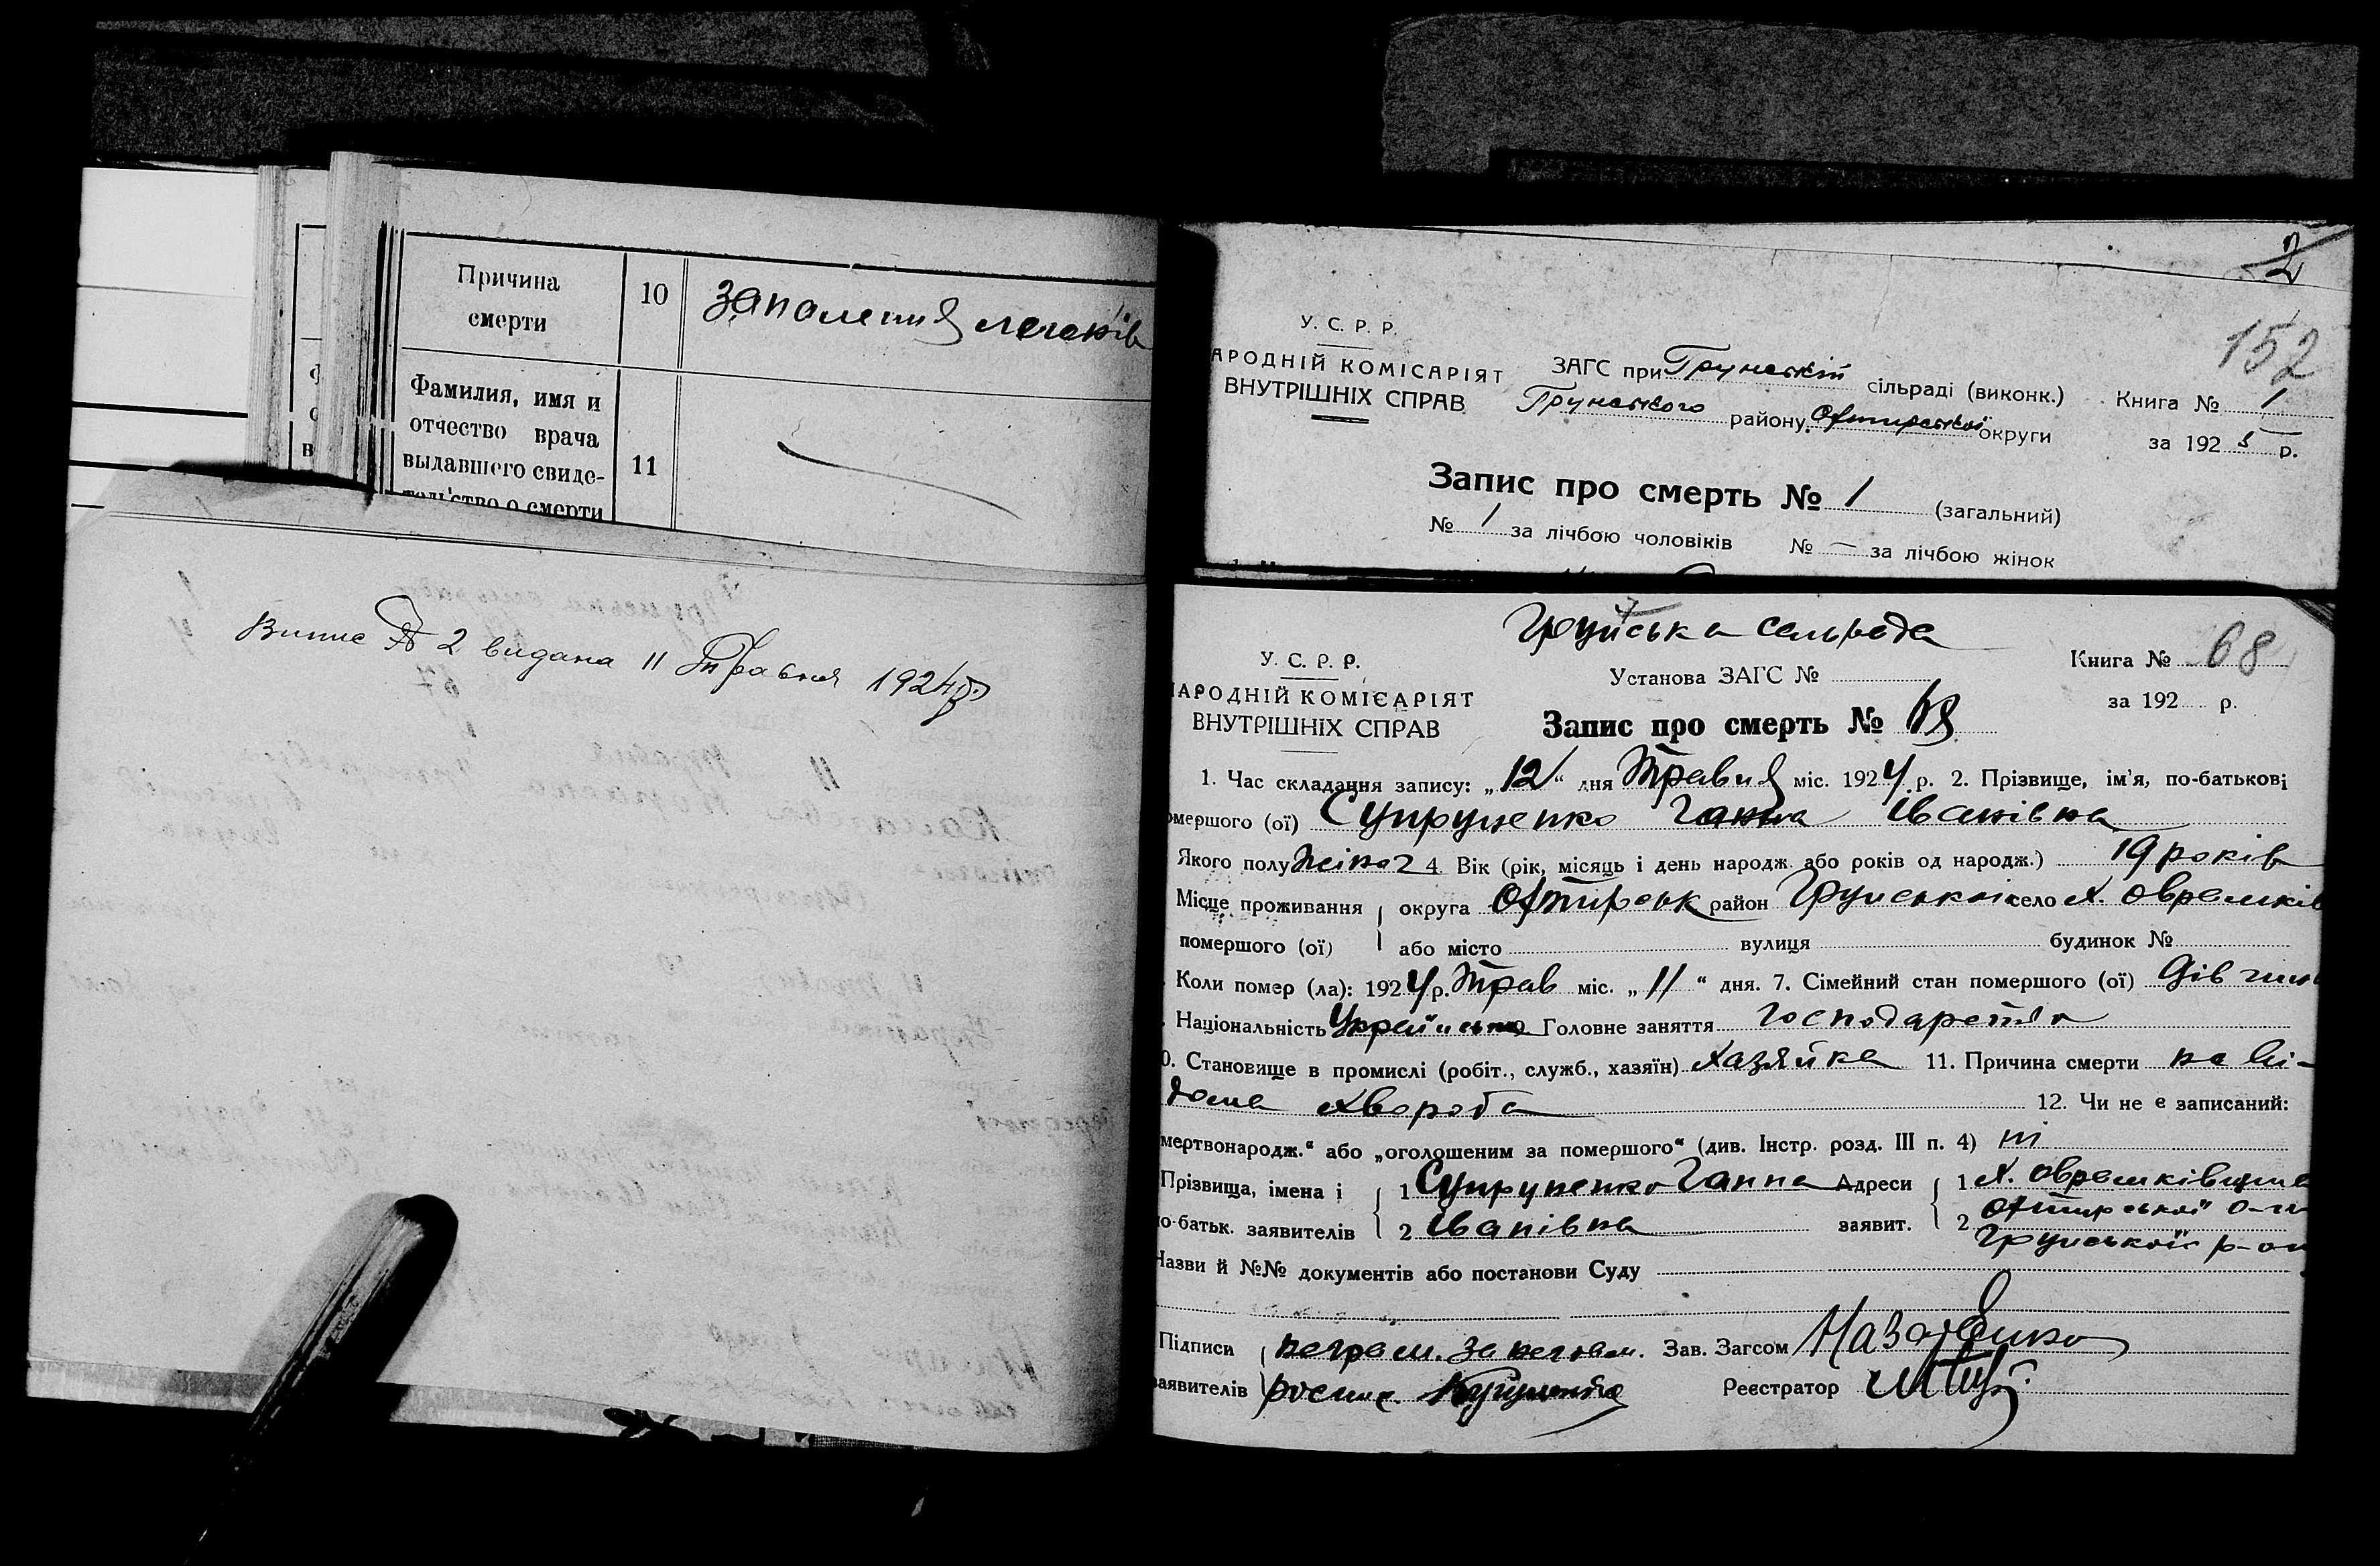 Причина смерти
10
запалення легенів
Фамилия, имя и
отчество врача
выдавшего свиде-
тельство о смерти
11
Випис № 2 видана 11 Травня 1924 р.
2
152
У. С. Р. Р.
АРОДНІЙ КОМІСАРІЯТ
ВНУТРІШНІХ СПРАВ
ЗАГС при Грунській сільраді (виконк.)
Грунського району Охтирської округи
Книга № 1
за 192 р.
Запис про смерть № 1 (загальний)
№ 1 за лічбою чоловіків № — за лічбою жінок
Грунська сельрада
У. С. Р. Р.
НАРОДНІЙ КОМІСАРІЯТ
ВНУТРІШНІХ СПРАВ
Установа ЗАГС №
Книга № 68
за 192 р.
Запис про смерть № 68
1. Час складання запису: „12“ дня Травня міс. 1924 р. 2. Прізвище, ім'я, по-батькові
омершого (ої) Супруненко Ганна Іванівна
Якого полу Жіноч 4. Вік (рік, місяць і день народж. або років од народж.) 19 років
Місце проживання округа Охтирськ район Грунської село х.
помершого (ої) або місто вулиця будинок №
Коли помер (ла): 1924 р. Трав міс. „11“ дня. 7. Сімейний стан помершого (ої) Дівчина
Національність Українська Головне заняття Господарство
0. Становище в промислі (робіт., служб., хазяїн) хазяйка 11. Причина смерти не ві-
дома хвороба 12. Чи не є записаний:
мертвонародж.“ або „оголошеним за помершого“ (див. Інстр. розд. III п. 4) ні
Прізвища, імена і 1 Супруненко Ганна Адреси 1 х.
о-батьк. заявителів 2 Іванівна заявит. 2 Охтирської о-ги
Грунської р-он
Назви й №№ документів або постанови Суду
Підписи неграм. за неграм. Зав. Загсом Назаренко
заявителів роспис. Реєстратор